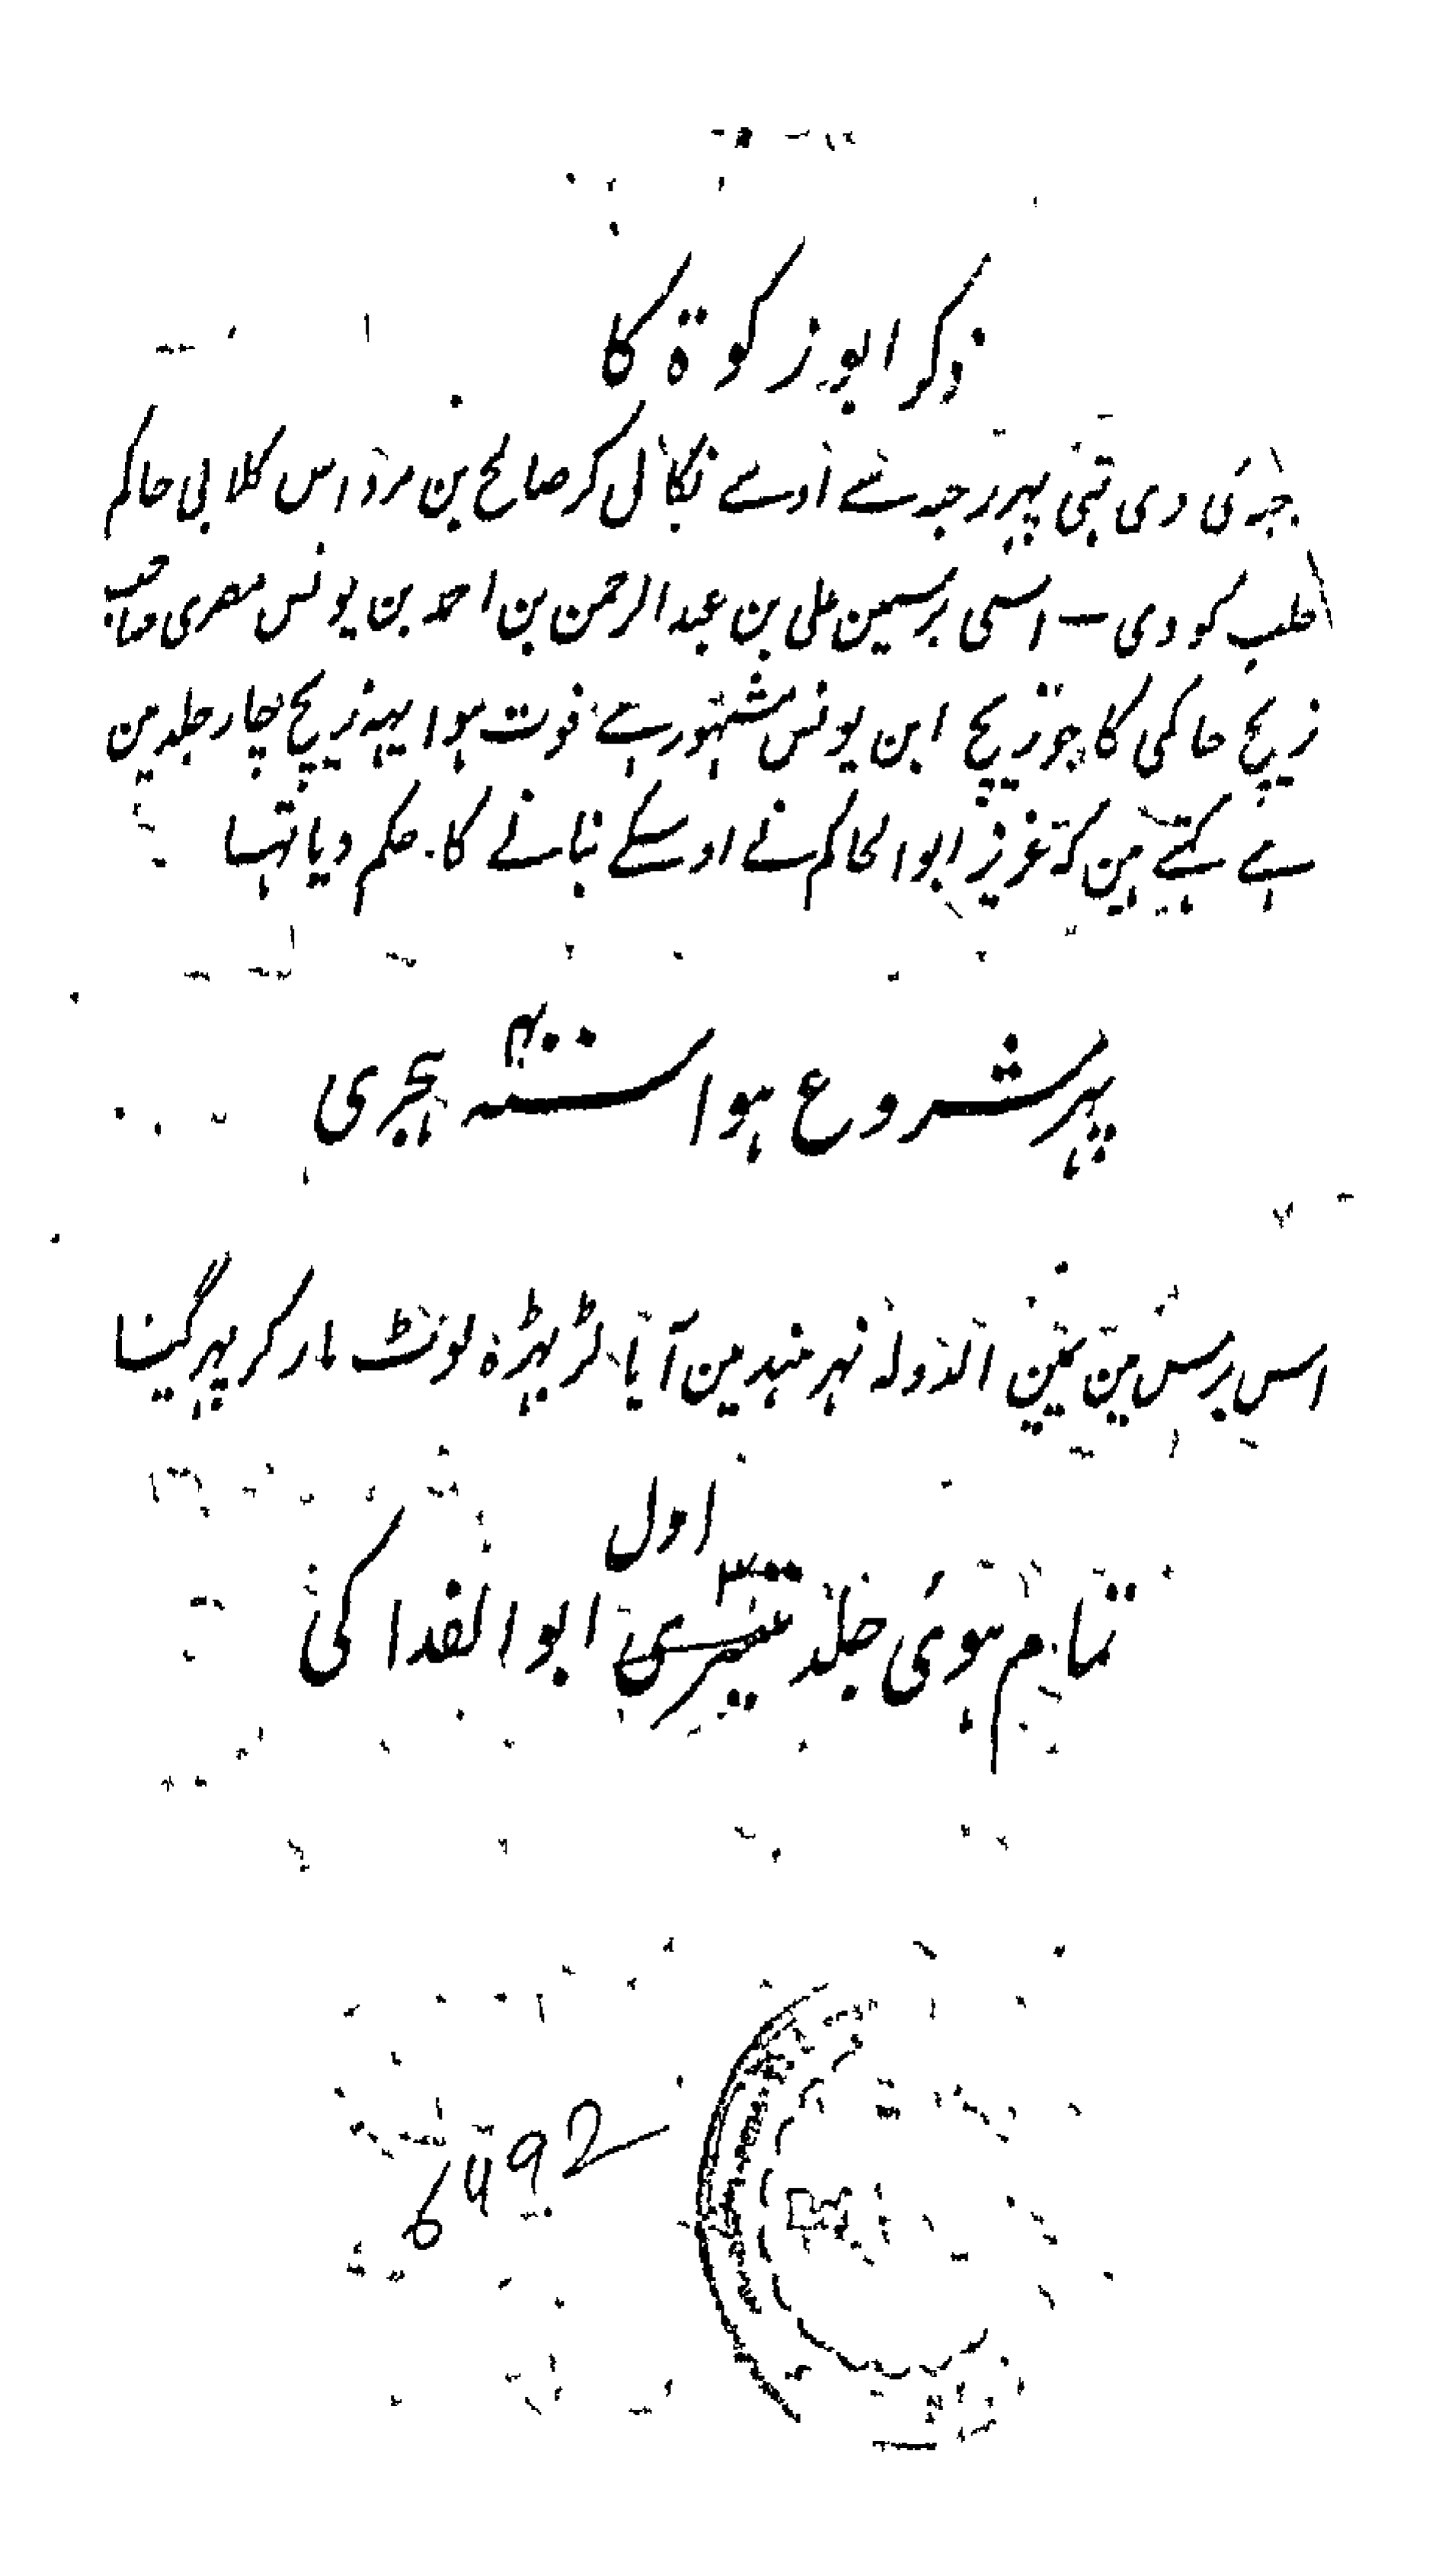 ذکر ابو زکوۃ کا
جہ کی دی تہی پہر رجبہ سے اوسے نکال کر صالح بن مرداس کلابی حاکم
حلب کو دی — اسی برسمین علی بن عبد الرحمن بن احمد بن یونس مصری صاحب
زیچ حاکمی کا جو زیچ ابن یونس مشہور ہے فوت ہوا یہہ زیچ چار جلد مین
ہے کہتے ہین کہ عزیز ابو الحاکم نے اوسکے بنانے کا حکم دیا تہا
پہر شروع ہوا سنہ ۴۰۰ ہجری
اس برس مین یمین الدولہ نہر ہند مین آیا لڑ بہڑہ لوٹ مار کر پہر گیا
اول
تمام ہوئی جلد تیسری ابو الفدا کی
6492